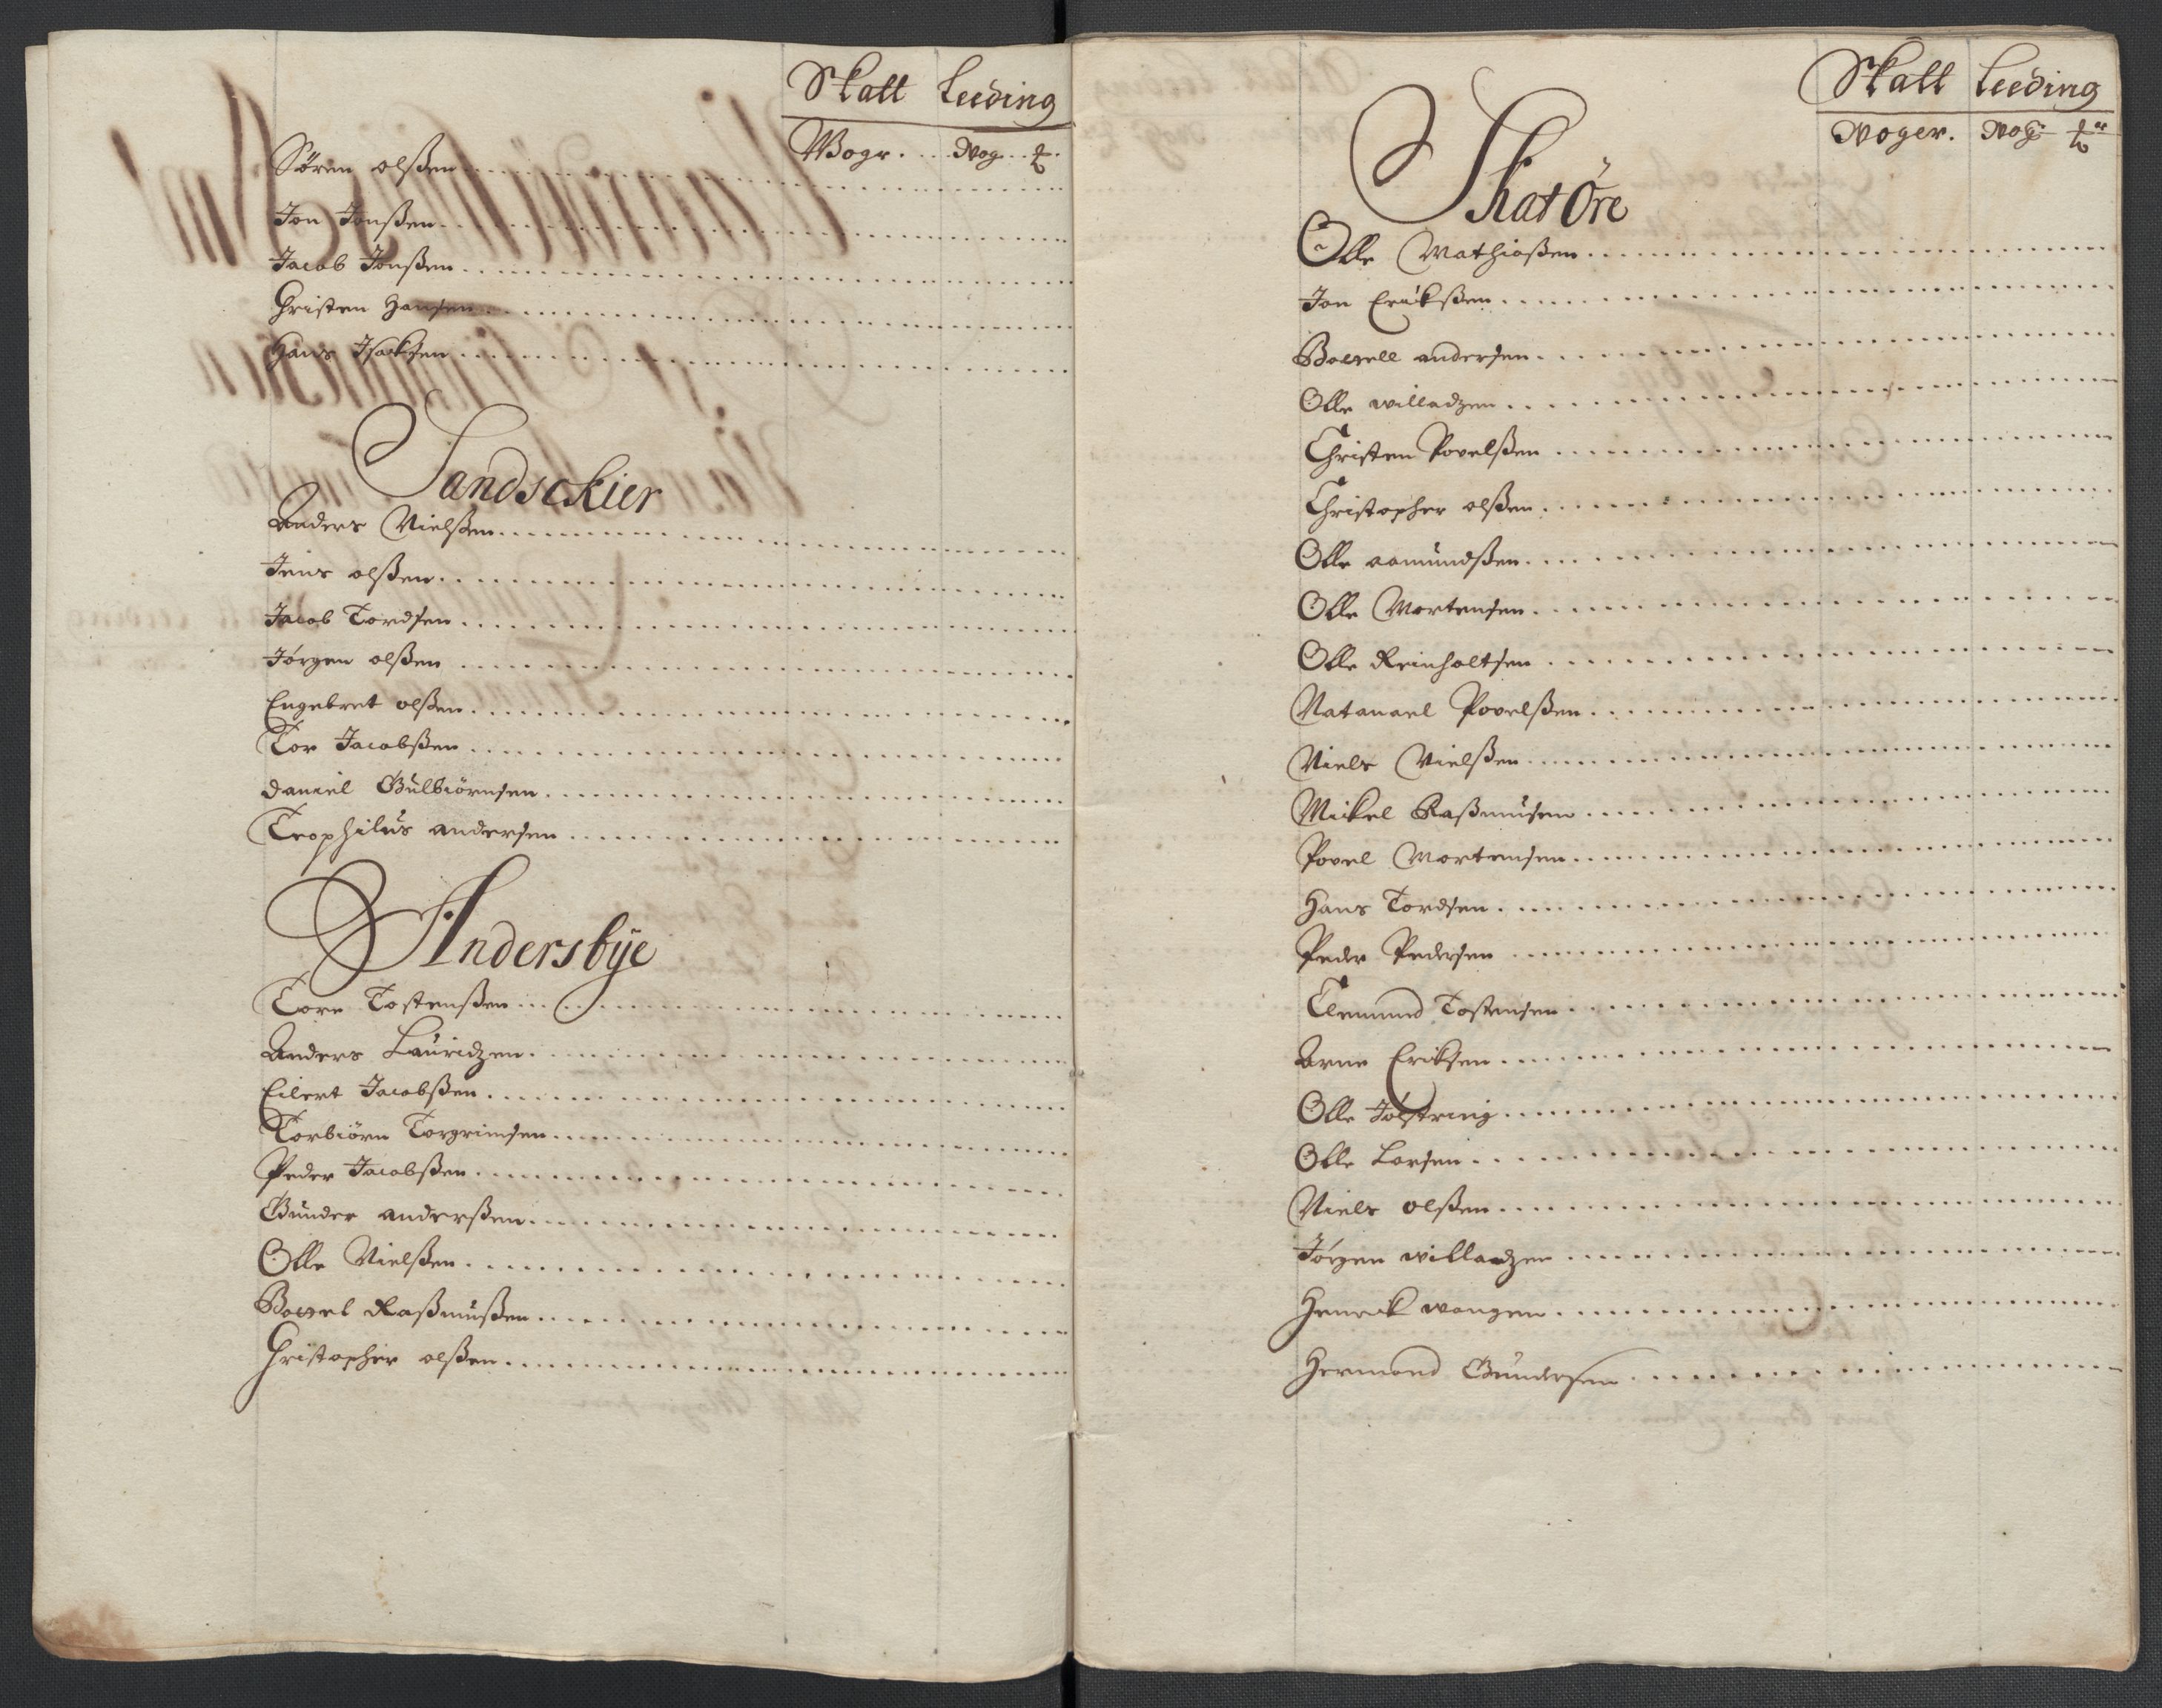 Skatt Leeding
Woger. Wog. ℔.
Sören olßen
Jon Jonßen
Jacob Jonßen
Christen Hansen
Hans Isacksen
Sandsckier
Anders Nielßen
Jens olßen
Jacob Tordsen
Jörgen olßen
Engebret olßen
Tor Jacobßen
Daniel Gulbiörnsen
Teophilus andersen
Andersbÿe
Tore Tostenßen
Anders Lauridzen
Eilert Jacobßen
Torbiörn Torgrimsen
Peder Jacobßen
Gunder anderßen
Olle Nielßen
Boerel Raßmußen
Christopher olßen
Skatt Leeding
Woger. Wog: ℔er
Skatöre
Olle Mathiaßen
Jon Erickßen
Boerell andersen
Olle willadzen
Christen Povelßen
Christopher olßen
Olle aamundßen
Olle Mortensen
Olle Reinholtsen
Natanael Povelßen
Niels Nielßen
Mickel Raßmusen
Povel Mortensen
Hans Tordsen
Peder Pedersen
Clemend Tostensen
Arne Ericksen
Olle Jölstring
Olle Larsen
Niels olßen
Jörgen willadzen
Henrick wangen
Hermand Gundersen